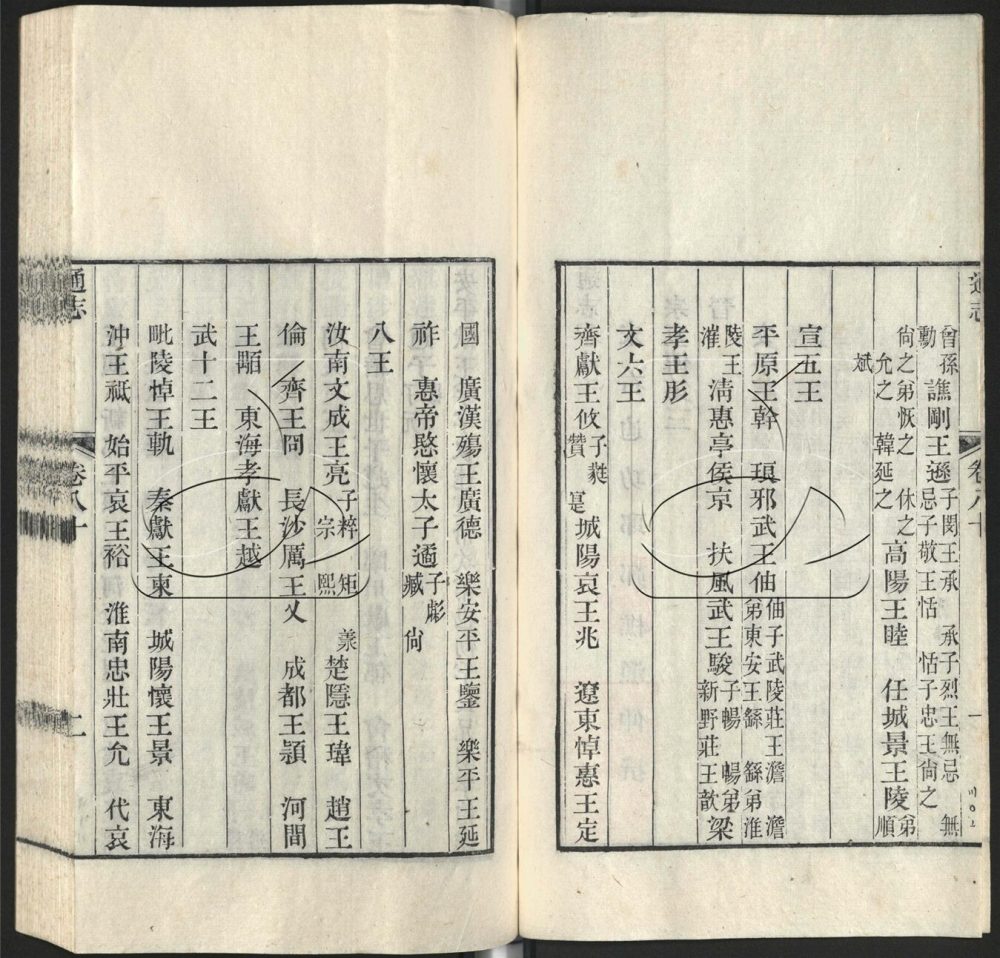 通志 卷八十 一 川〇二
曾孫勳 譙剛王遜 子閔王承 承子烈王無忌 無忌子敬王恬 恬子忠王尙之
尙之弟恢之 休之 允之 韓延之 高陽王睦 任城景王陵 弟順
斌
宣五王
平原王幹 琅邪武王伷 伷子武陵莊王澹 澹弟東安王繇 繇弟淮
陵王漼 淸惠亭侯京 扶風武王駿 子暢 暢弟新野莊王歆 梁
孝王肜
文六王
齊獻王攸 子蕤 贊 寔 城陽哀王兆 遼東悼惠王定
國 廣漢殤王廣德 樂安平王鑒 樂平王延
祚 惠帝愍懷太子遹 子虨 臧 尙
八王
汝南文成王亮 子粹 矩 羕 宗 熙 楚隱王瑋 趙王
倫 齊王冏 長沙厲王乂 成都王穎 河間
王顒 東海孝獻王越
武十二王
毗陵悼王軌 秦獻王東 城陽懷王景 東海
沖王祗 始平哀王裕 淮南忠壯王允 代哀
通志 卷八十 二